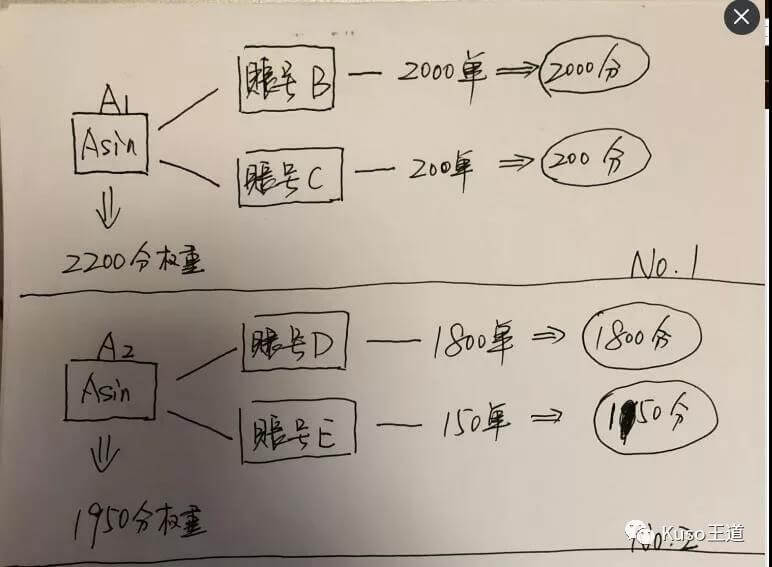 账号B — 2000单 ⇒ 2000分
A1
Asin
账号C — 200单 ⇒ 200分
2200分权重
No.1
账号D — 1800单 ⇒ 1800分
A2
Asin
账号E — 150单 ⇒ 150分
1950分权重
No.2
Kuso王道